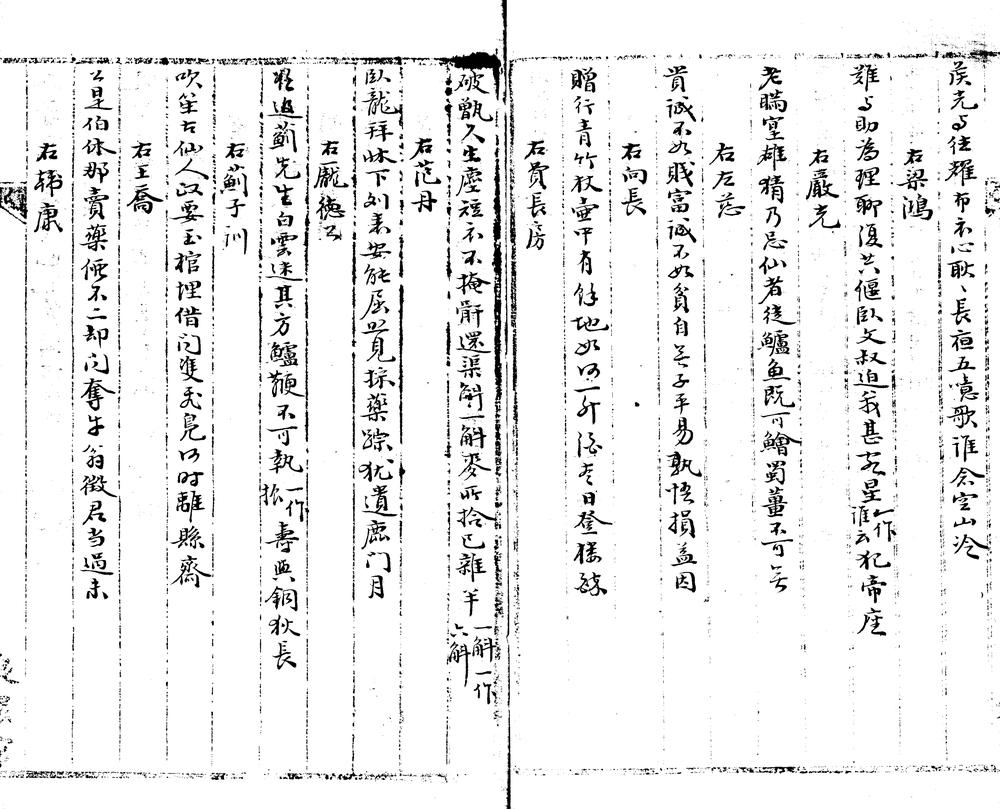 侯光与往耀布衣心耿〻長洹五噫歌誰念空山冷
右梁鴻
難与助為理聊復共偃臥文叔迫我甚客星一作誰云犯帝座
右嚴光
老瞞室雄猜乃忌仙者徒鱸魚既可鱠蜀薑不可無
右左慈
貴誠不如賤富誠不如貧自是子平易孰悟損益因
右向長
贈行青竹杖壷中有餘地如何一升酒盡日登樓醉
右費長房
破甑久生塵短衣不掩骭還渠斛一斛麥所拾已雜半一斛一作六斛
右范丹
臥龍拜牀下刘表安能屈空見採藥踪猶遺鹿门月
右龐德公
追薊先生白雲迷其方鱸鞭不可執一作拟壽與銅狄長
右薊子訓
吹笙古仙人汉要玉棺埋借问雙飛鳧何时離縣齋
右王喬
公是伯休那賣藥價不二却问奪牛翁徵君当過未
右韩康